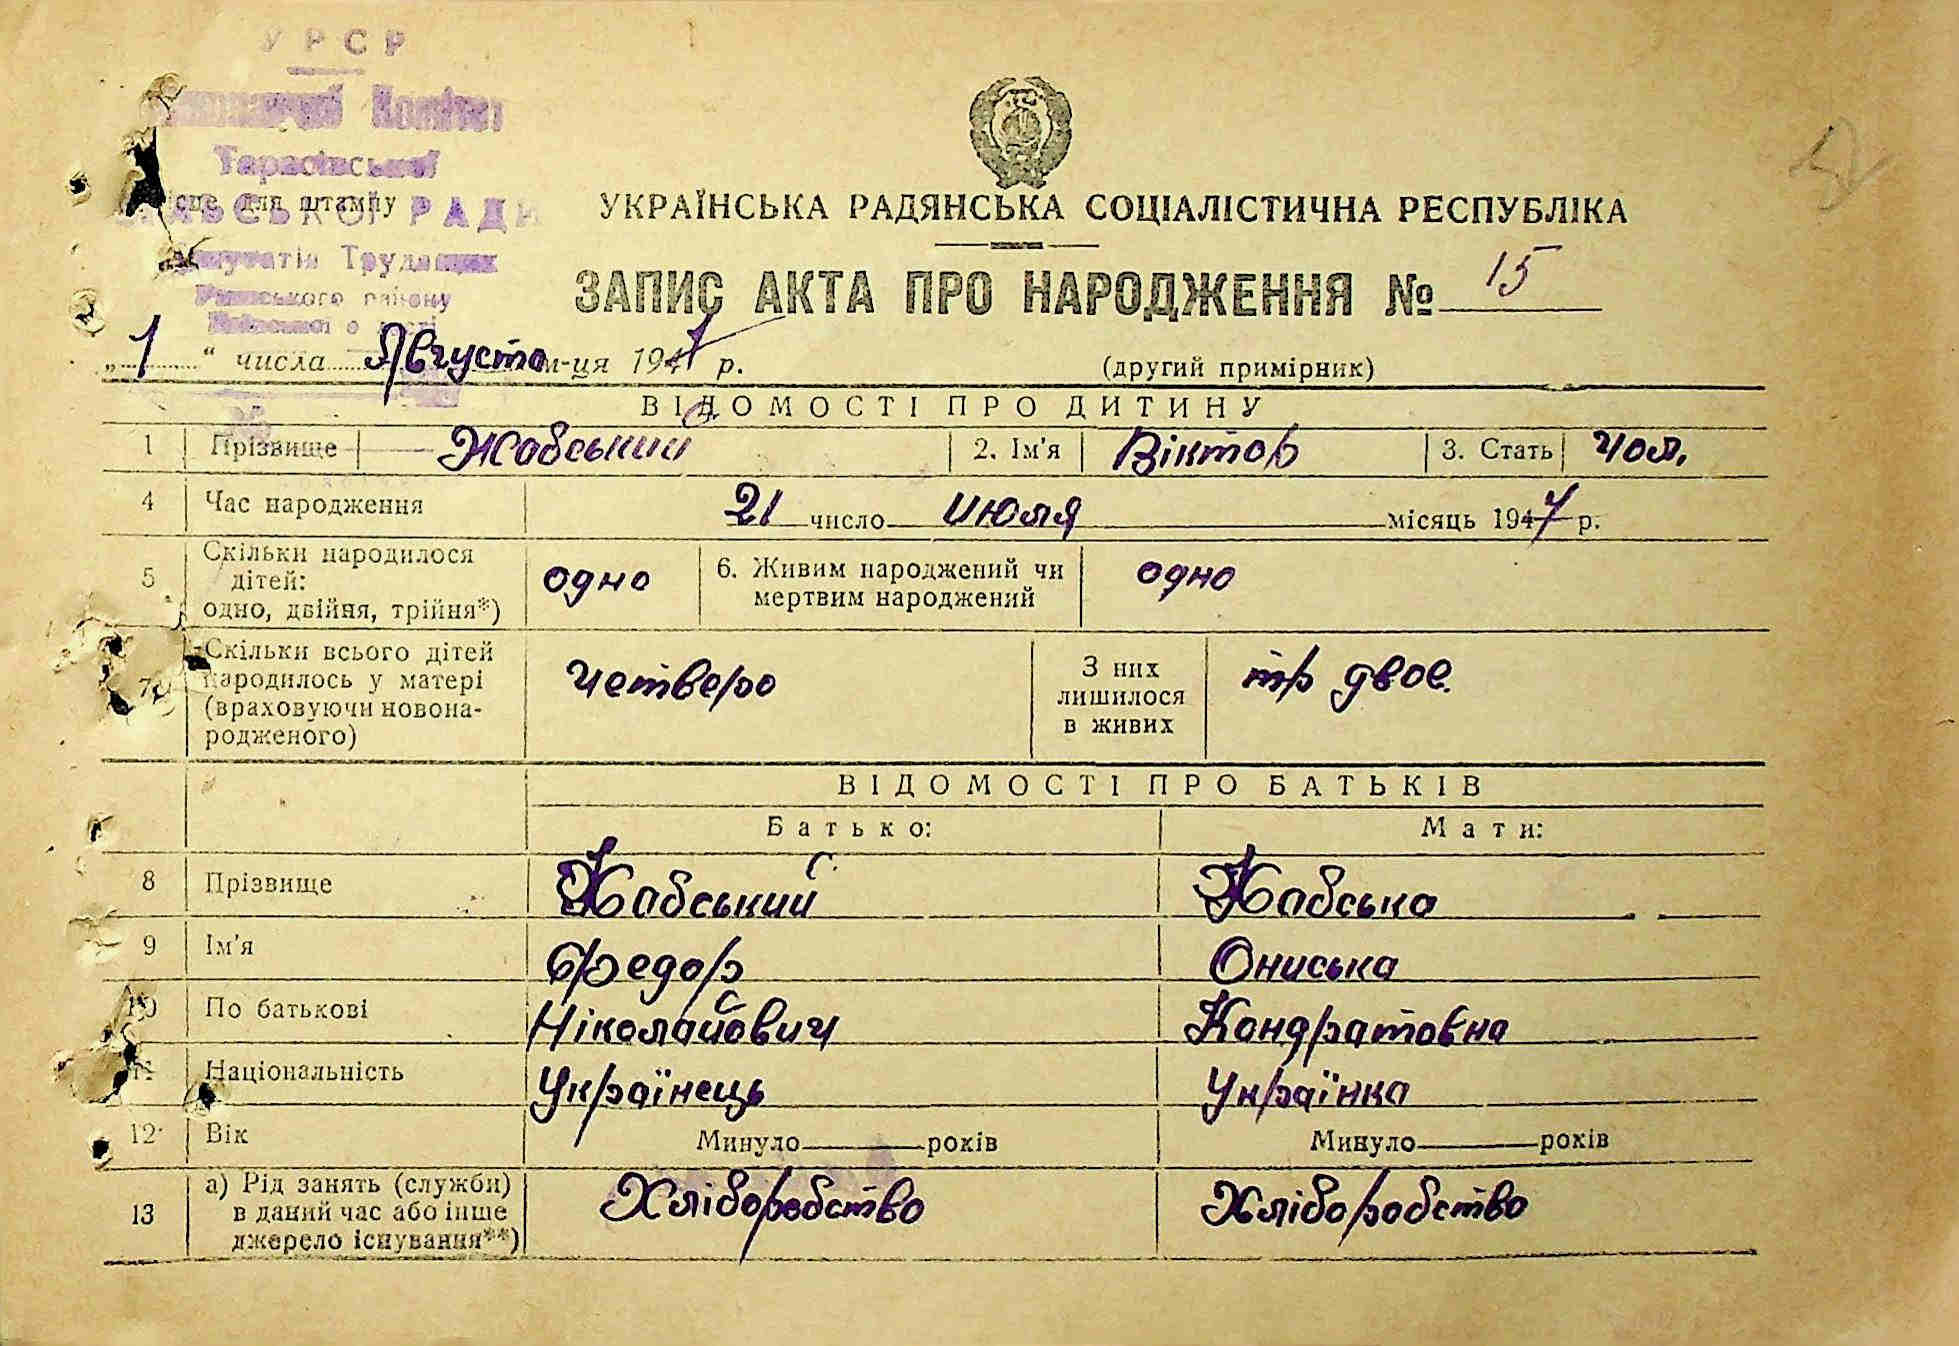 УРСР
Комітет
Тарасівської
Місце для штампу
СІЛЬСЬКОЇ РАДИ
Депутатів Трудящих
району
УКРАЇНСЬКА РАДЯНСЬКА СОЦІАЛІСТИЧНА РЕСПУБЛІКА
ЗАПИС АКТА ПРО НАРОДЖЕННЯ № 15
„1“ числа Августа м-ця 1947 р.
(другий примірник)
ВІДОМОСТІ ПРО ДИТИНУ
1 Прізвище Жабський 2. Ім'я Віктор 3. Стать чол.
4 Час народження 21 число июля місяць 1947 р.
5 Скільки народилося дітей: одно, двійня, трійня*) одно 6. Живим народжений чи мертвим народжений одно
7 Скільки всього дітей народилось у матері (враховуючи новонародженого) четверо З них лишилося в живих тр двое.
ВІДОМОСТІ ПРО БАТЬКІВ
Батько: Мати:
8 Прізвище Жабський Жабська
9 Ім'я Федор Ониська
10 По батькові Ніколайович Кондратовна
11 Національність Українець Українка
12 Вік Минуло років Минуло років
13 а) Рід занять (служби) в даний час або інше джерело існування**) Хліборобство Хліборобство